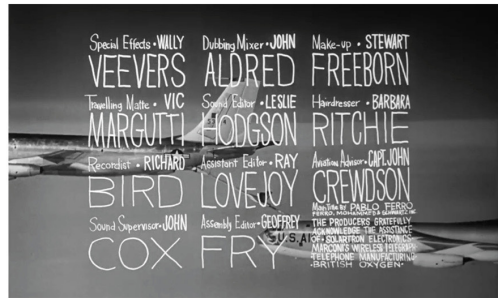 Special Effects • WALLY
VEEVERS
Travelling Matte • VIC
MARGUTTI
Recordist • RICHARD
BIRD
Sound Supervisor • JOHN
COX
Dubbing Mixer • JOHN
ALDRED
Sound Editor • LESLIE
HODGSON
Assistant Editor • RAY
LOVEJOY
Assembly Editor • GEOFFREY
FRY
Make-up • STEWART
FREEBORN
Hairdresser • BARBARA
RITCHIE
Aviation Advisor • CAPT. JOHN
CREWDSON
Main Title By PABLO FERRO
FERRO, MOHAMMED & SCHWARTZ INC
THE PRODUCERS GRATEFULLY
ACKNOWLEDGE THE ASSISTANCE
OF • SOLARTRON ELECTRONICS
MARCONI'S WIRELESS TELEGRAPH
TELEPHONE MANUFACTURING
• BRITISH OXYGEN •
U.S. AI